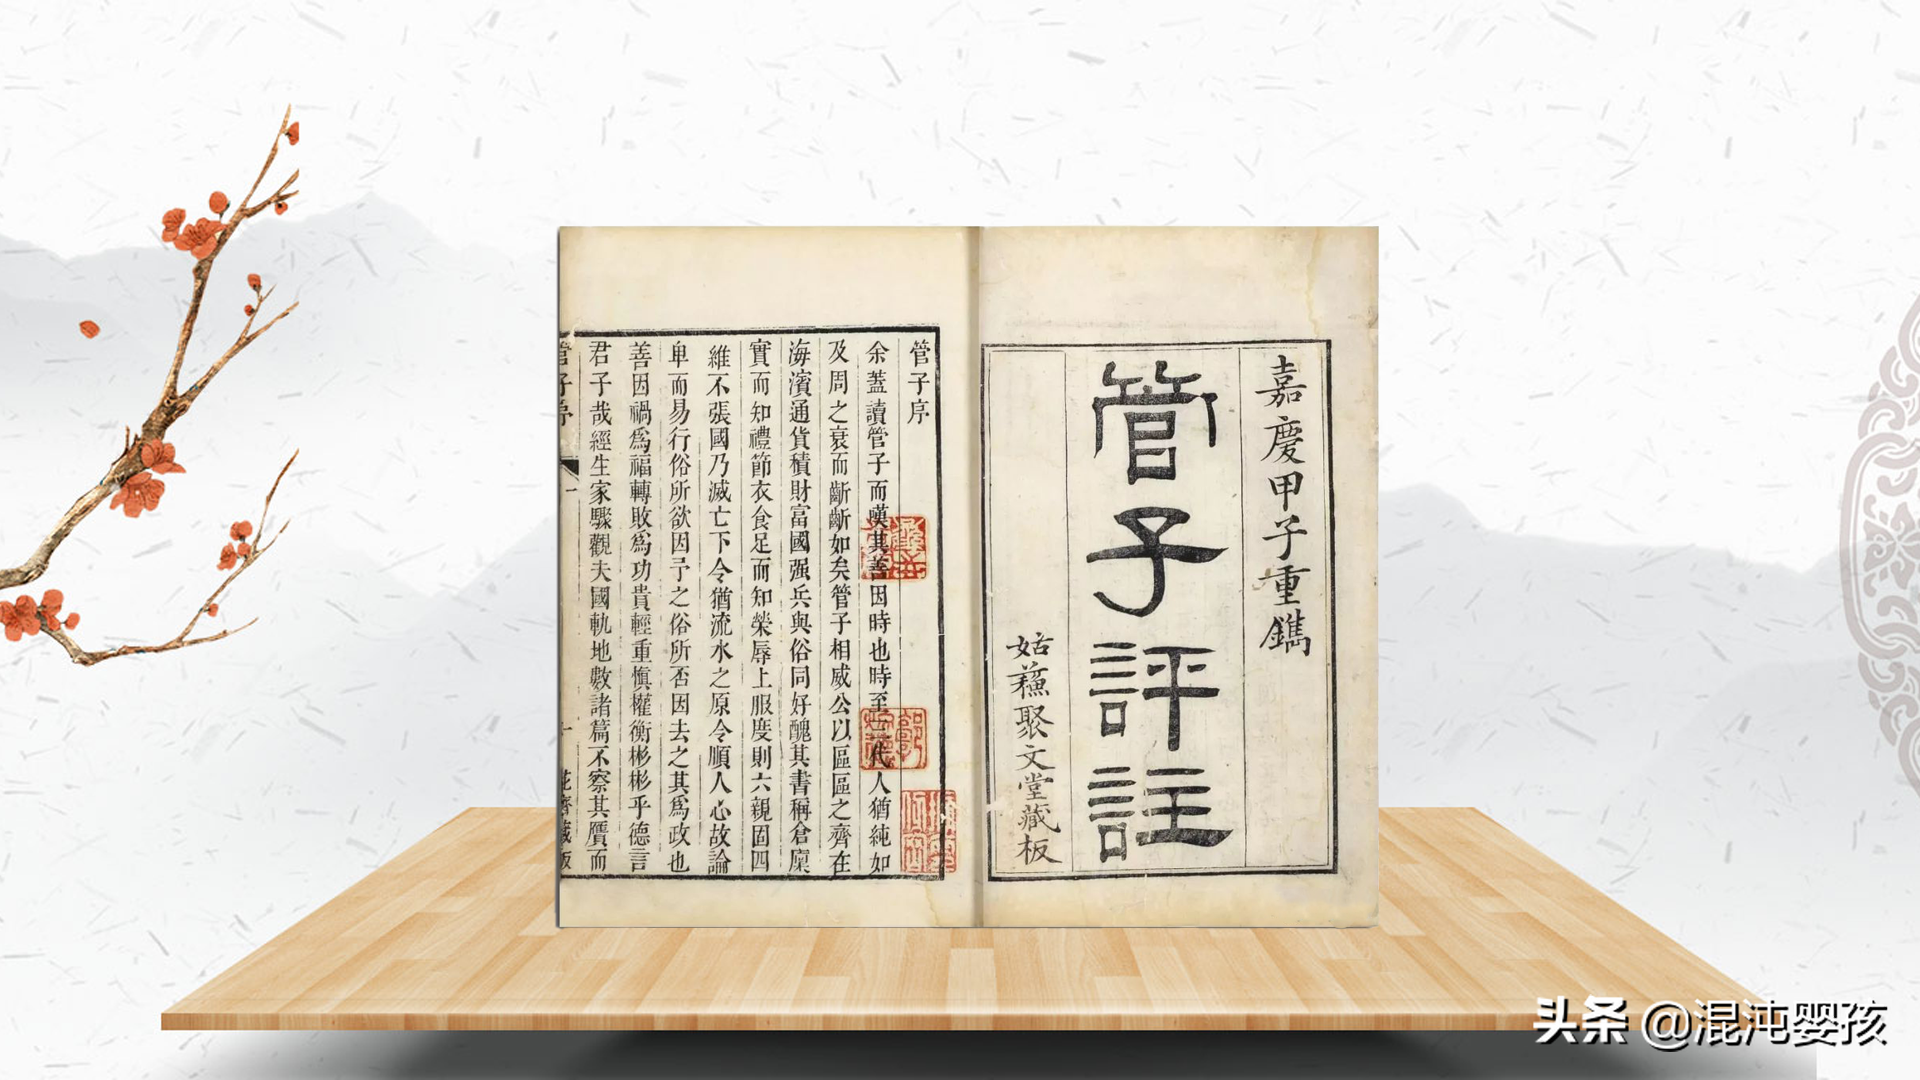 嘉慶甲子重鐫
管子評註
姑蘓聚文堂藏板
管子序
余蓋讀管子而嘆其善因時也時至三代人猶純如
及周之衰而齗齗如矣管子相威公以區區之齊在
海濱通貨積財富國强兵與俗同好醜其書稱倉廩
實而知禮節衣食足而知榮辱上服度則六親固四
維不張國乃滅亡下令猶流水之原令順人心故論
卑而易行俗所欲因予之俗所否因去之其爲政也
善因禍爲福轉敗爲功貴輕重愼權衡彬彬乎德言
君子哉經生家驟觀夫國軌地數諸篇不察其贋而
管子序
一
花齋藏板
头条 @混沌婴孩